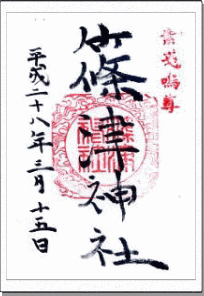 素盞嗚尊
篠津神社
平成二十八年三月十五日